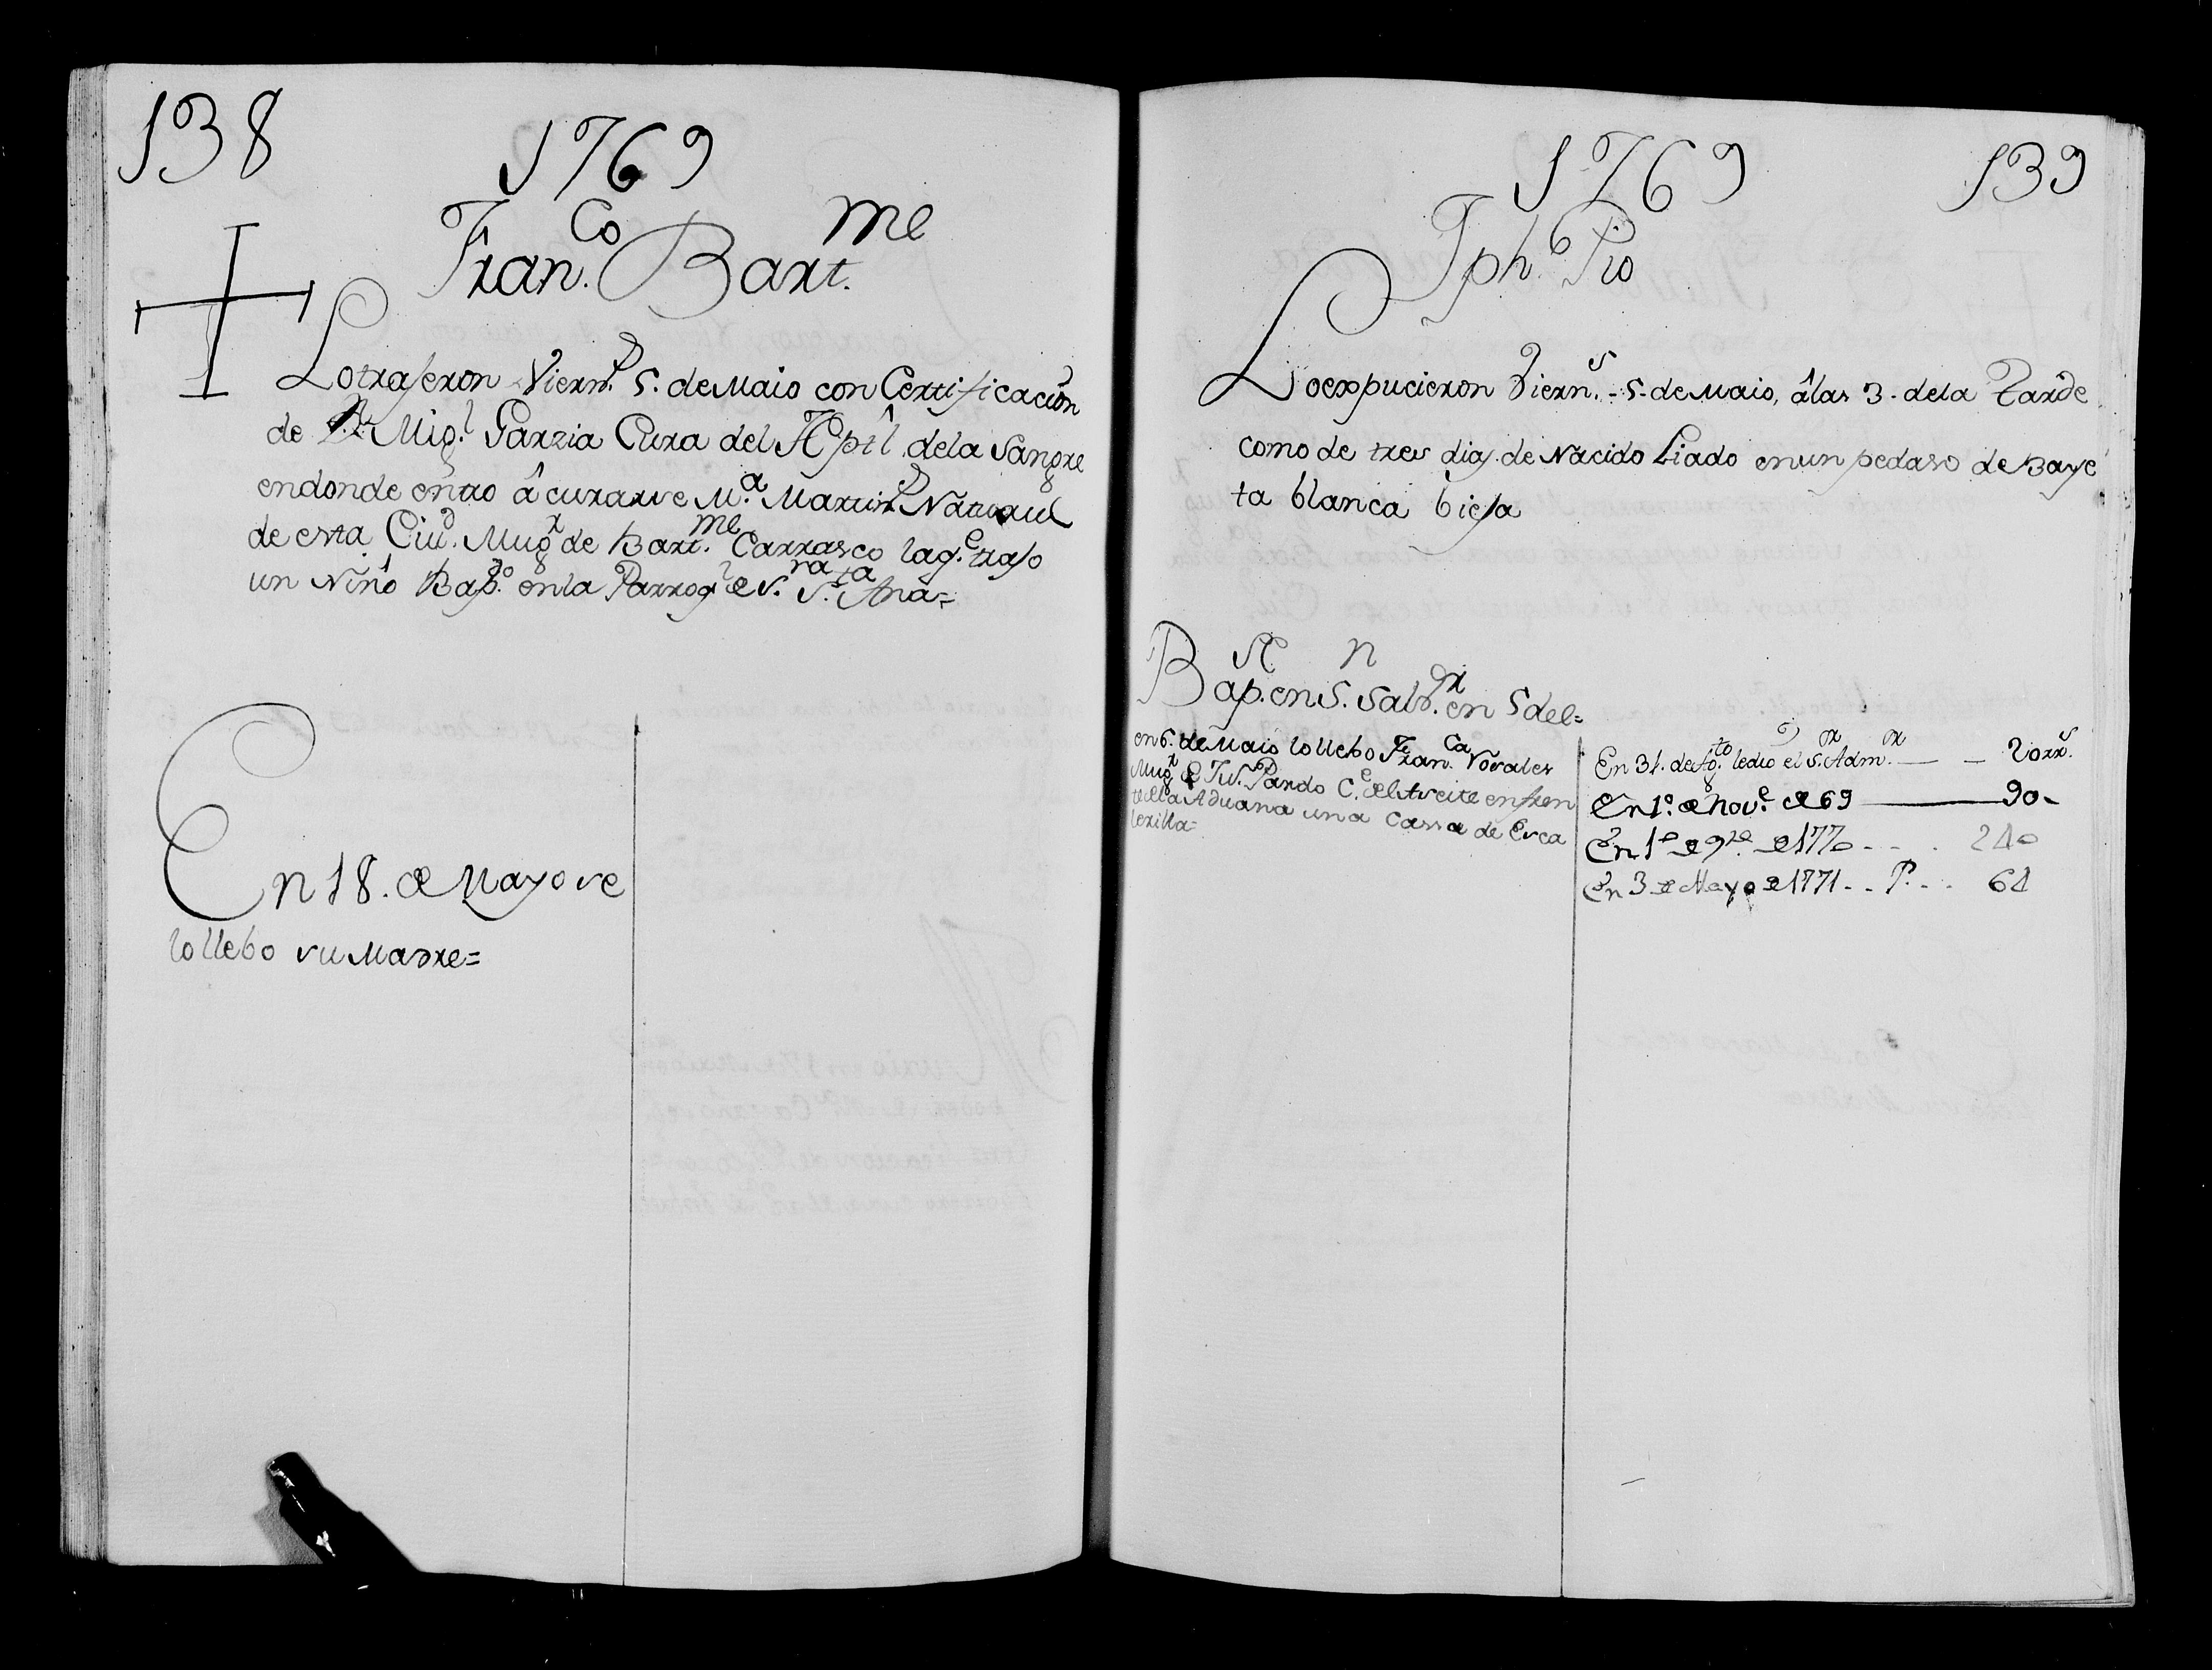 138
1769
Fran.co Bart.me
Lo trajeron Viern.s 5. de Maio con Certificacion
de D.n Mig.l Garzia Cura del Hptl dela Sangre
endonde entro â curarse M.a Martin Natural
de esta Ciud. Mug.r de Bart.me Carrasco laq.e trajo
un Niño Bap.do en la Parroq.l de S.ra S.ta Ana=
En 18. de Mayo se
lo llebo su Madre=
1769
139
Jph. Pio
Lo expucieron Viern.s 5. de Maio, âlas 3. dela Tarde
como de tres dias de Nacido Liado en un pedaso de Baye
ta blanca bieja
Bap. en S. Salb.or en 5 del=
en 6. de Maio lo llebo Fran.ca
Mug.r de Pardo C.e del Aseite en fren
te de la Aduana una Cassa de Esca
lerilla=
En 31. de Ag.to le dio el S.or Adm.or
En 1.o de Nov.e de 69 90
En 1.o de 9.re de 1770 240
En 3 de Mayo de 1771 P. 64